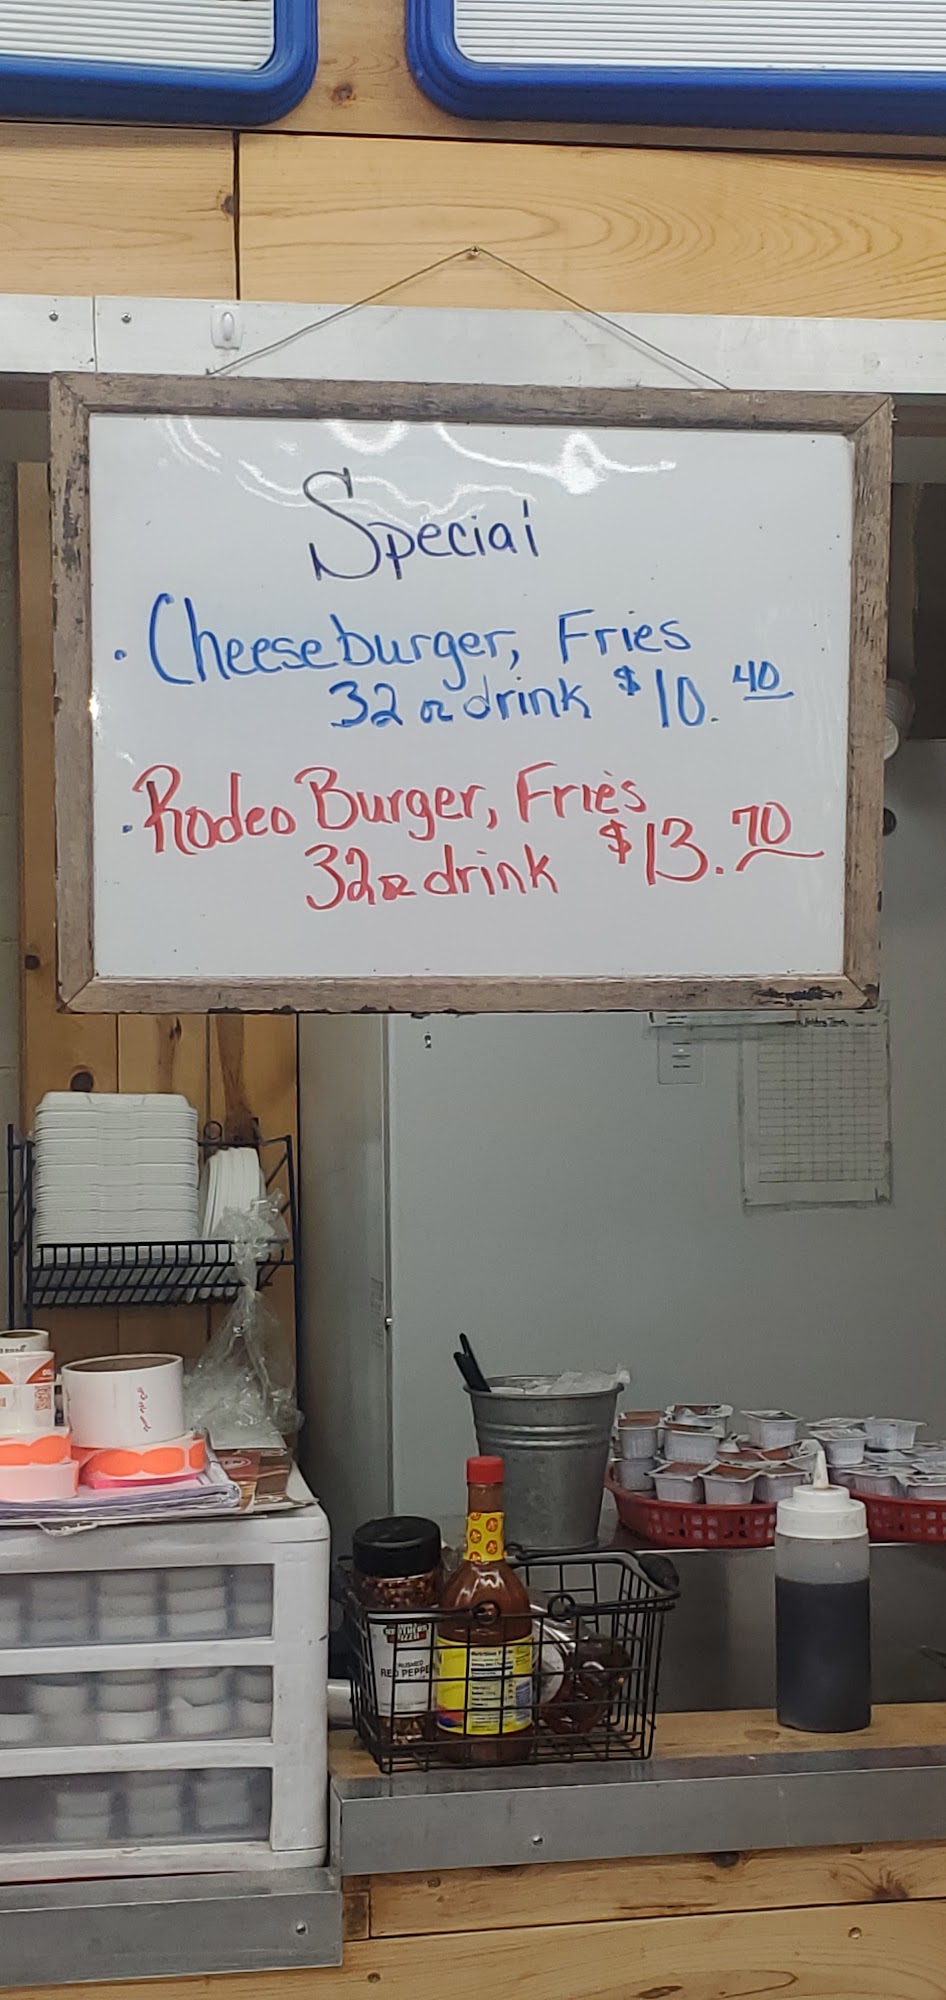 Special
· Cheeseburger, Fries
32 oz drink $10.40
· Rodeo Burger, Fries
32oz drink $13.70
RED PEPPE